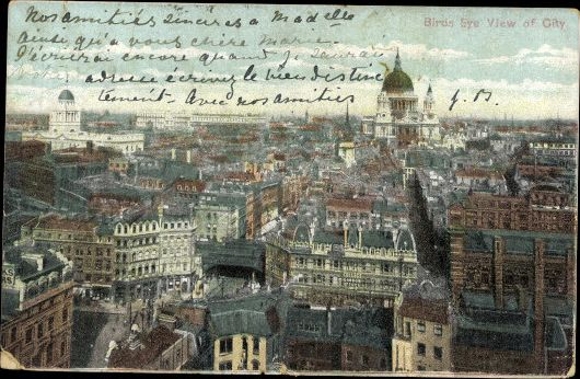 Birds Eye View of City
Nos amitiés sincères a Madelle
ainsi qu'a vous chère Marie
J'écrirai encore quand j'aurai
adresse écrivez le bien distinc
tement. Avec nos amitiés J. B.